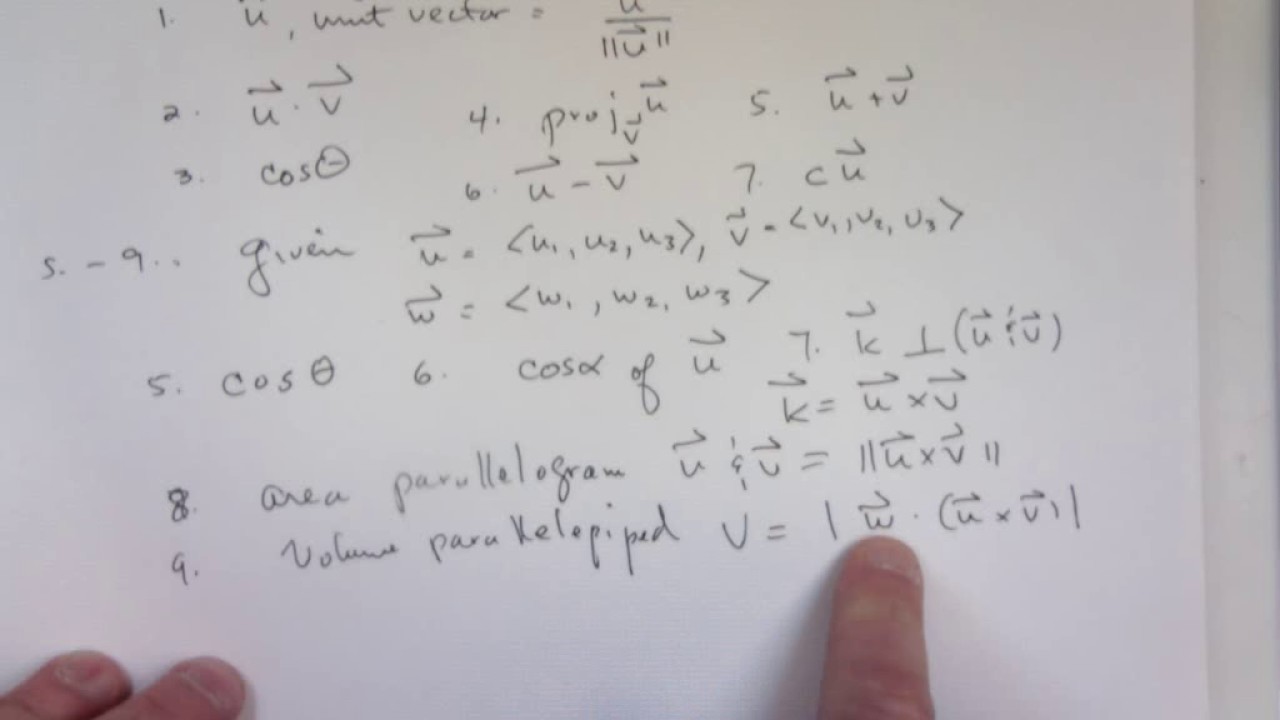 1. u⃗, unit vector = u⃗ / ||u⃗||
2. u⃗ · v⃗ 4. proj_v⃗ u⃗ 5. u⃗ + v⃗
3. cosθ 6. u⃗ - v⃗ 7. cu⃗
5. - 9.. given u⃗ = <u₁, u₂, u₃>, v⃗ = <v₁, v₂, v₃>
w⃗ = <w₁, w₂, w₃>
5. cosθ 6. cosα of u⃗ 7. k⃗ ⊥ (u⃗ & v⃗)
k⃗ = u⃗ × v⃗
8. area parallelogram u⃗ & v⃗ = ||u⃗ × v⃗||
9. Volume parallelepiped V = | w⃗ · (u⃗ × v⃗) |